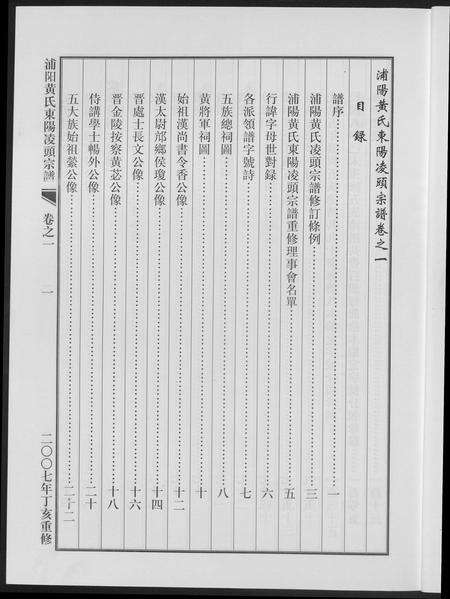 浦陽黃氏東陽凌頭宗譜卷之一
目錄
譜序……一
浦陽黃氏凌頭宗譜修訂條例……三
浦陽黃氏東陽凌頭宗譜重修理事會名單……五
行諱字母世對錄……六
各派領譜字號詩……七
五族總祠圖……八
黃將軍祠圖……十
始祖漢尚書令香公像……十二
漢太尉邟鄉侯瓊公像……十四
晉處士長文公像……十六
晉金陵按察黃苾公像……十八
侍講學士暢外公像……二十
五大族始祖蘩公像……二十二
浦阳黃氏東陽凌頭宗譜
卷之一
一
二〇〇七年丁亥重修